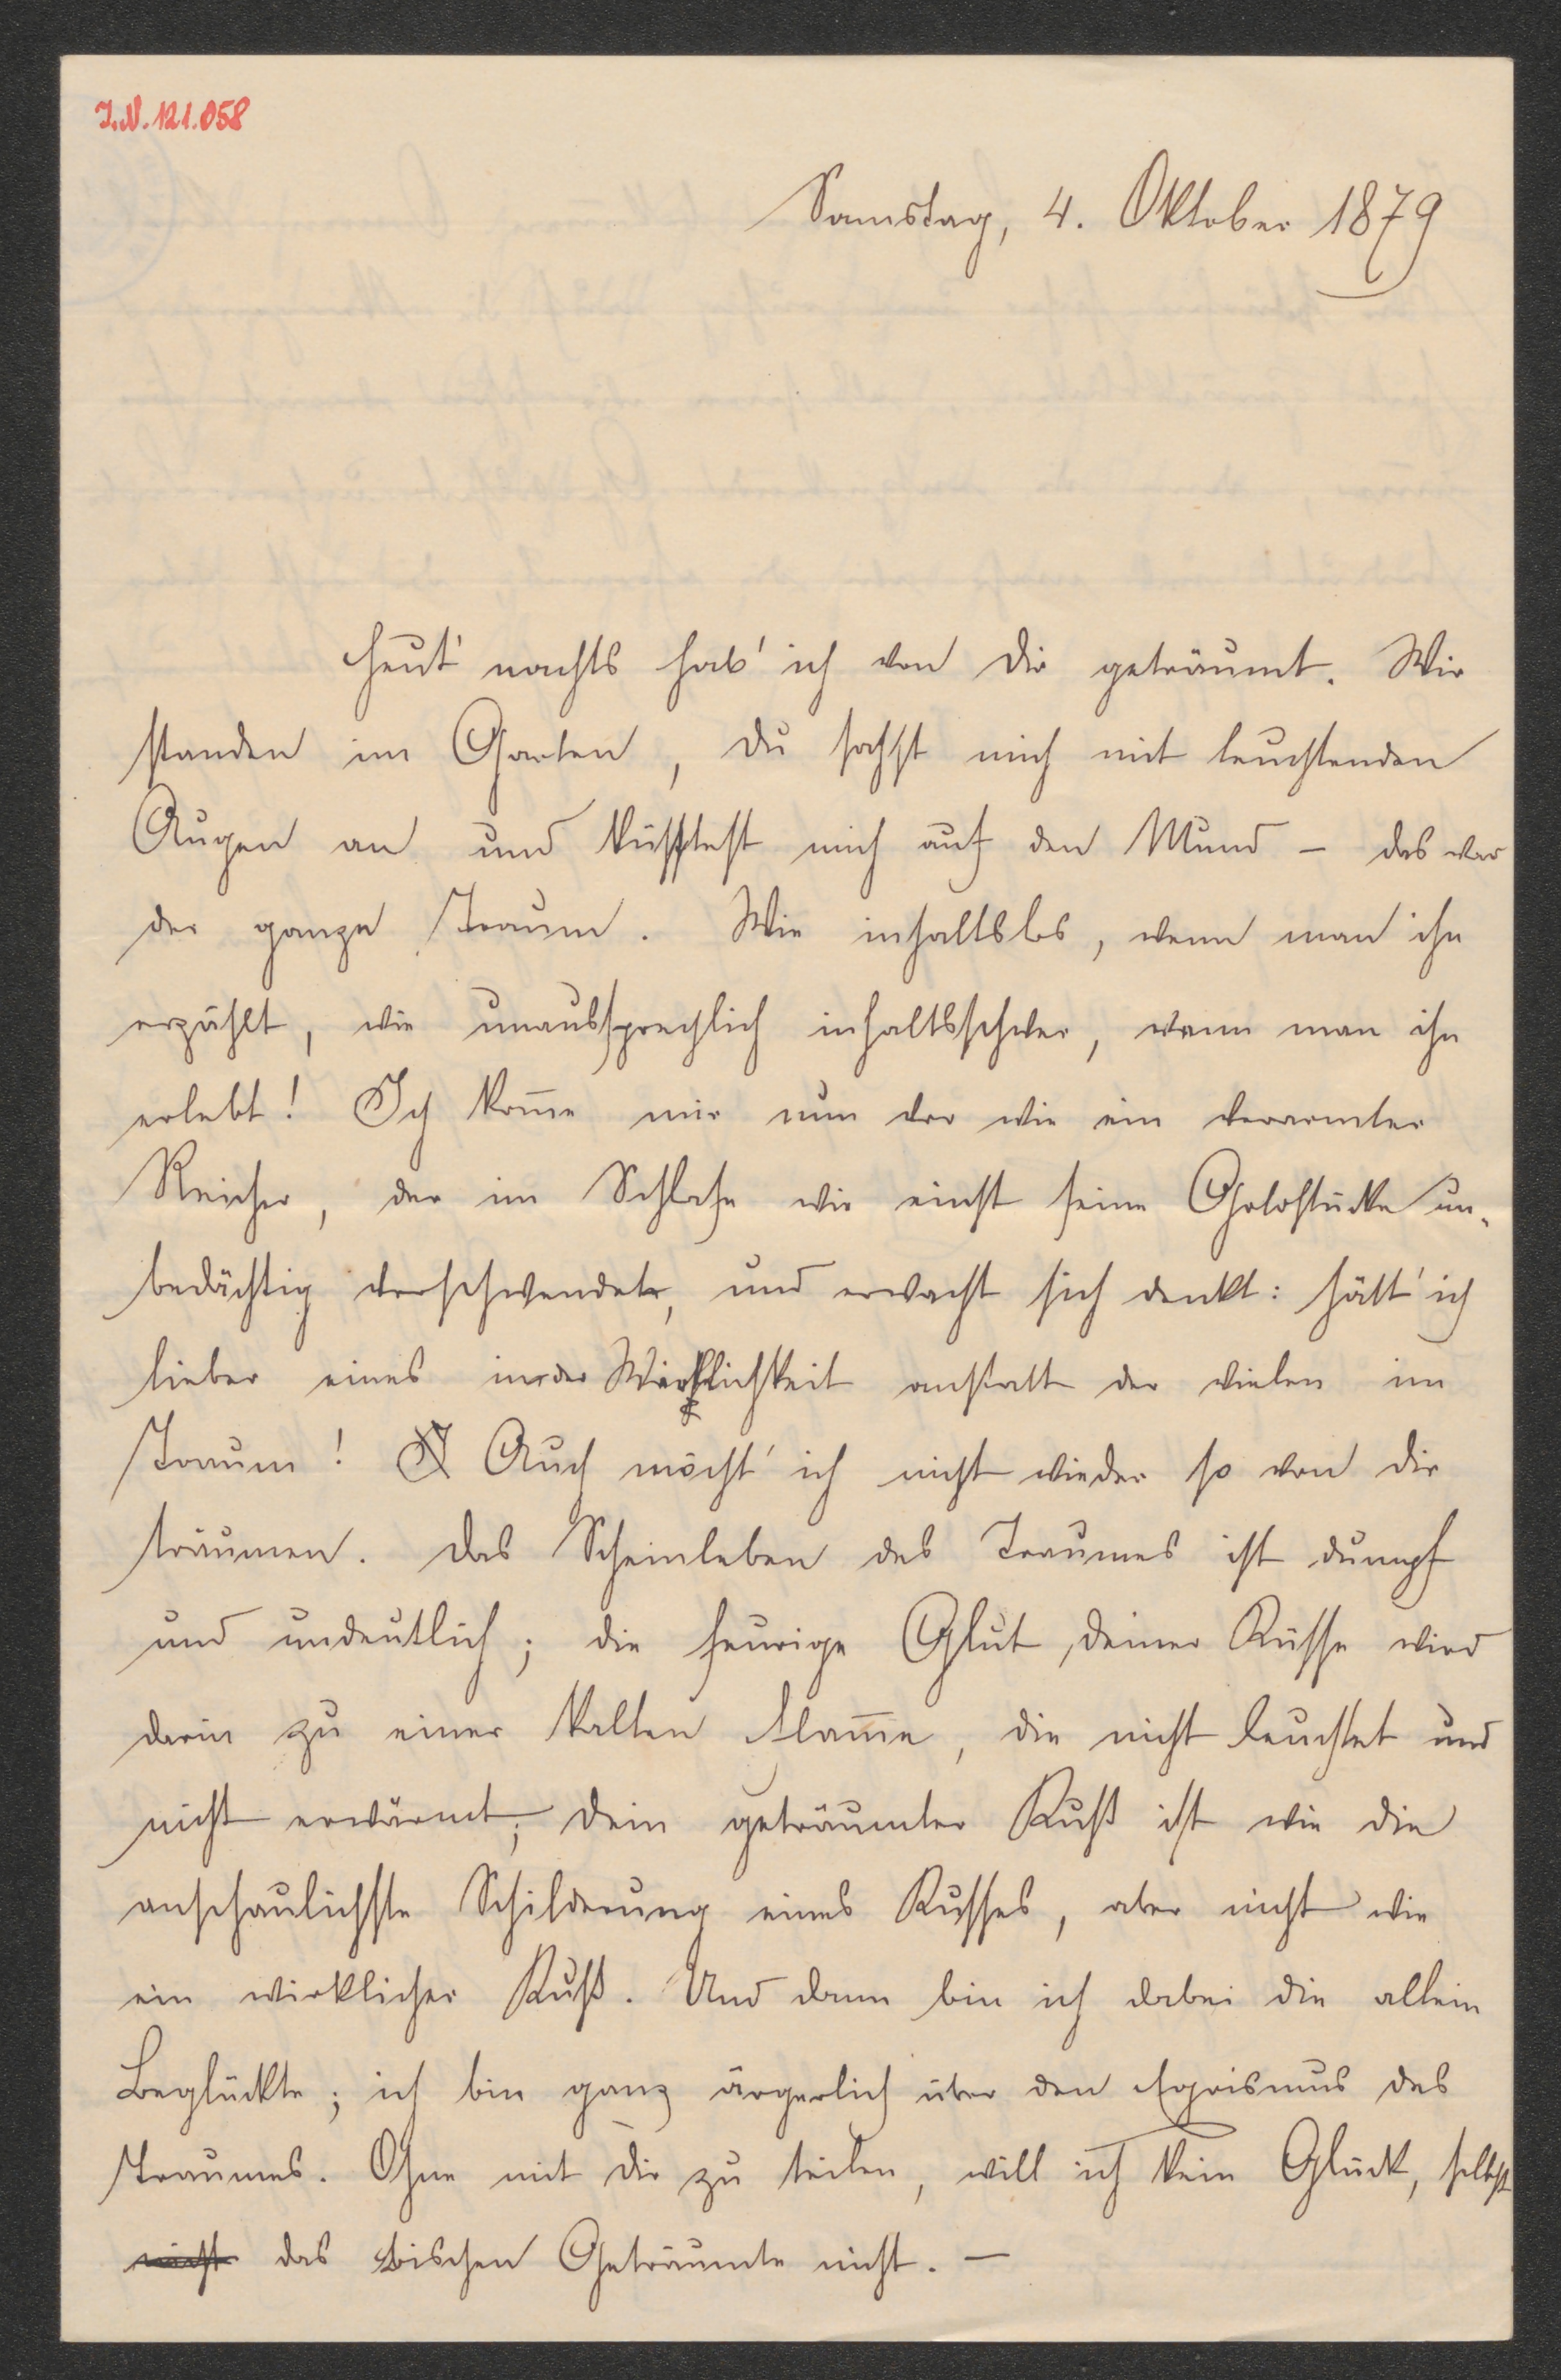 I.N. 121.058
Samstag, 4. Oktober 1879
Heut' nachts hab' ich von dir geträumt. Wir
standen im Garten, du sahst mich mit leuchtenden
Augen an und küsstest mich auf den Mund – das war
der ganze Traum. Wie inhaltslos, wenn man ihn
erzählt, wie unaussprechlich inhaltsschwer, wenn man ihn
erlebt! Ich kom̄e mir nun vor wie ein verarmter
Reicher, der im Schlafe wie einst seine Goldstücke un-
bedächtig verschwendet, und erwacht sich denkt: hätt' ich
lieber eines in der Wirklichkeit anstatt der vielen im
Traum! Auch möcht' ich nicht wieder so von dir
träumen. Das Scheinleben des Traumes ist dumpf
und undeutlich; die feurige Glut deiner Küsse wird
darin zu einer kalten Flam̄e, die nicht leuchtet und
nicht erwärmt; dein geträumter Kuß ist wie die
anschaulichste Schilderung eines Kusses, aber nicht wie
ein wirklicher Kuß. Und dann bin ich dabei die allein
Beglückte; ich bin ganz ärgerlich über den Egoismus des
Traumes. Ohne mit dir zu teilen, will ich kein Glück, selbst
nicht das bischen Geträumte nicht. —